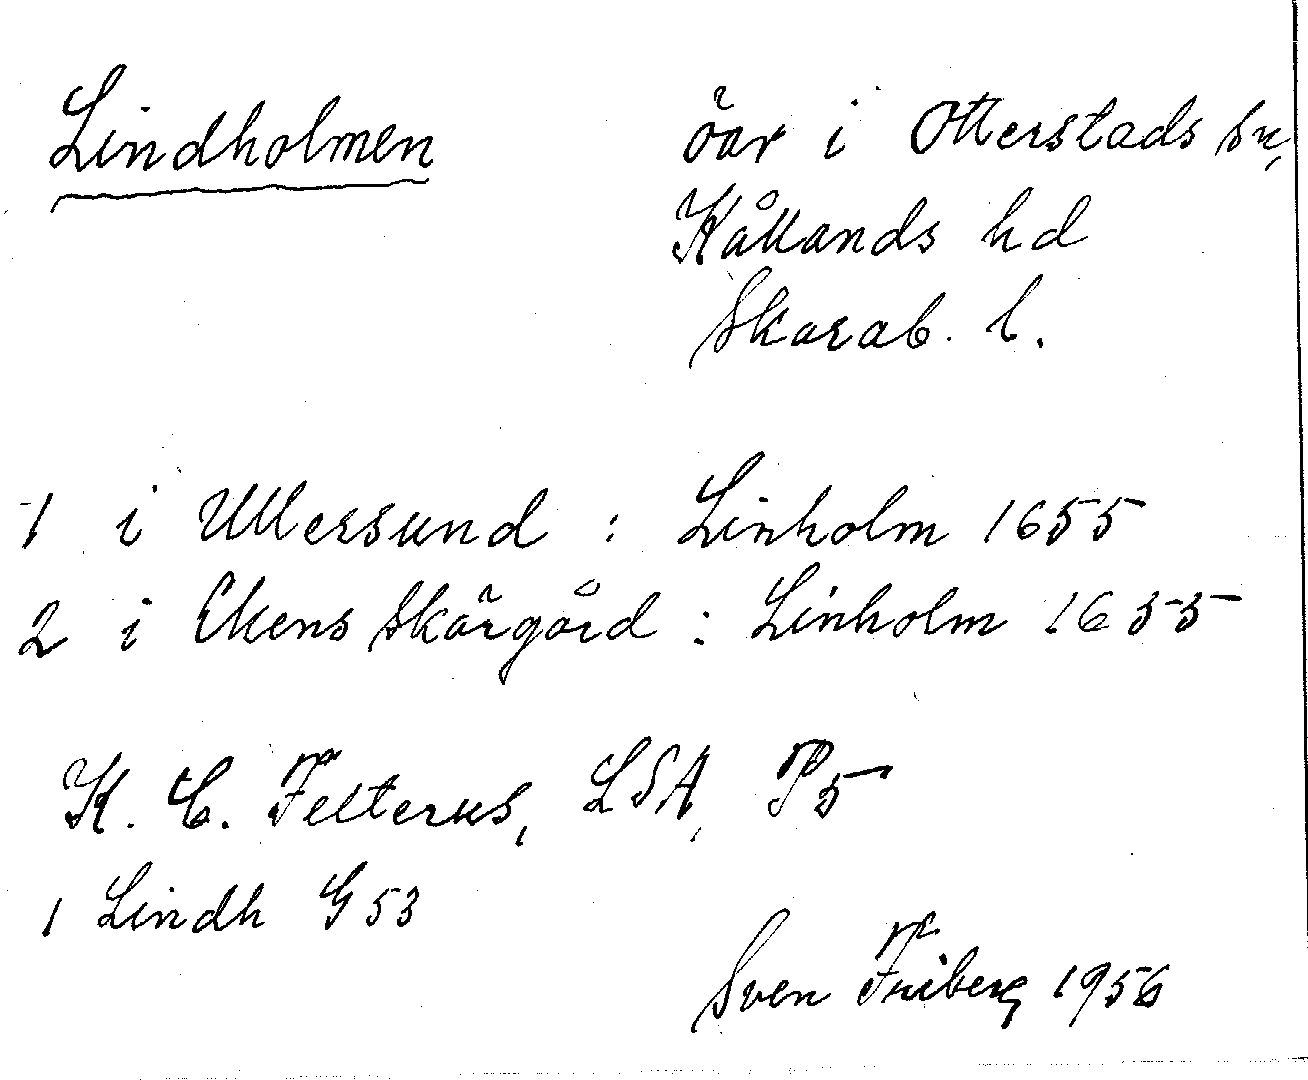 Lindholmen
öar i Otterstads sn,
Kållands hd
Skarab. l.
1 i Ullersund : Linholm 1655
2 i Ekens skärgård : Linholm 1655
K. C. Felterus, LSA, P5
1 Lindh G 53
Sven Friberg 1956